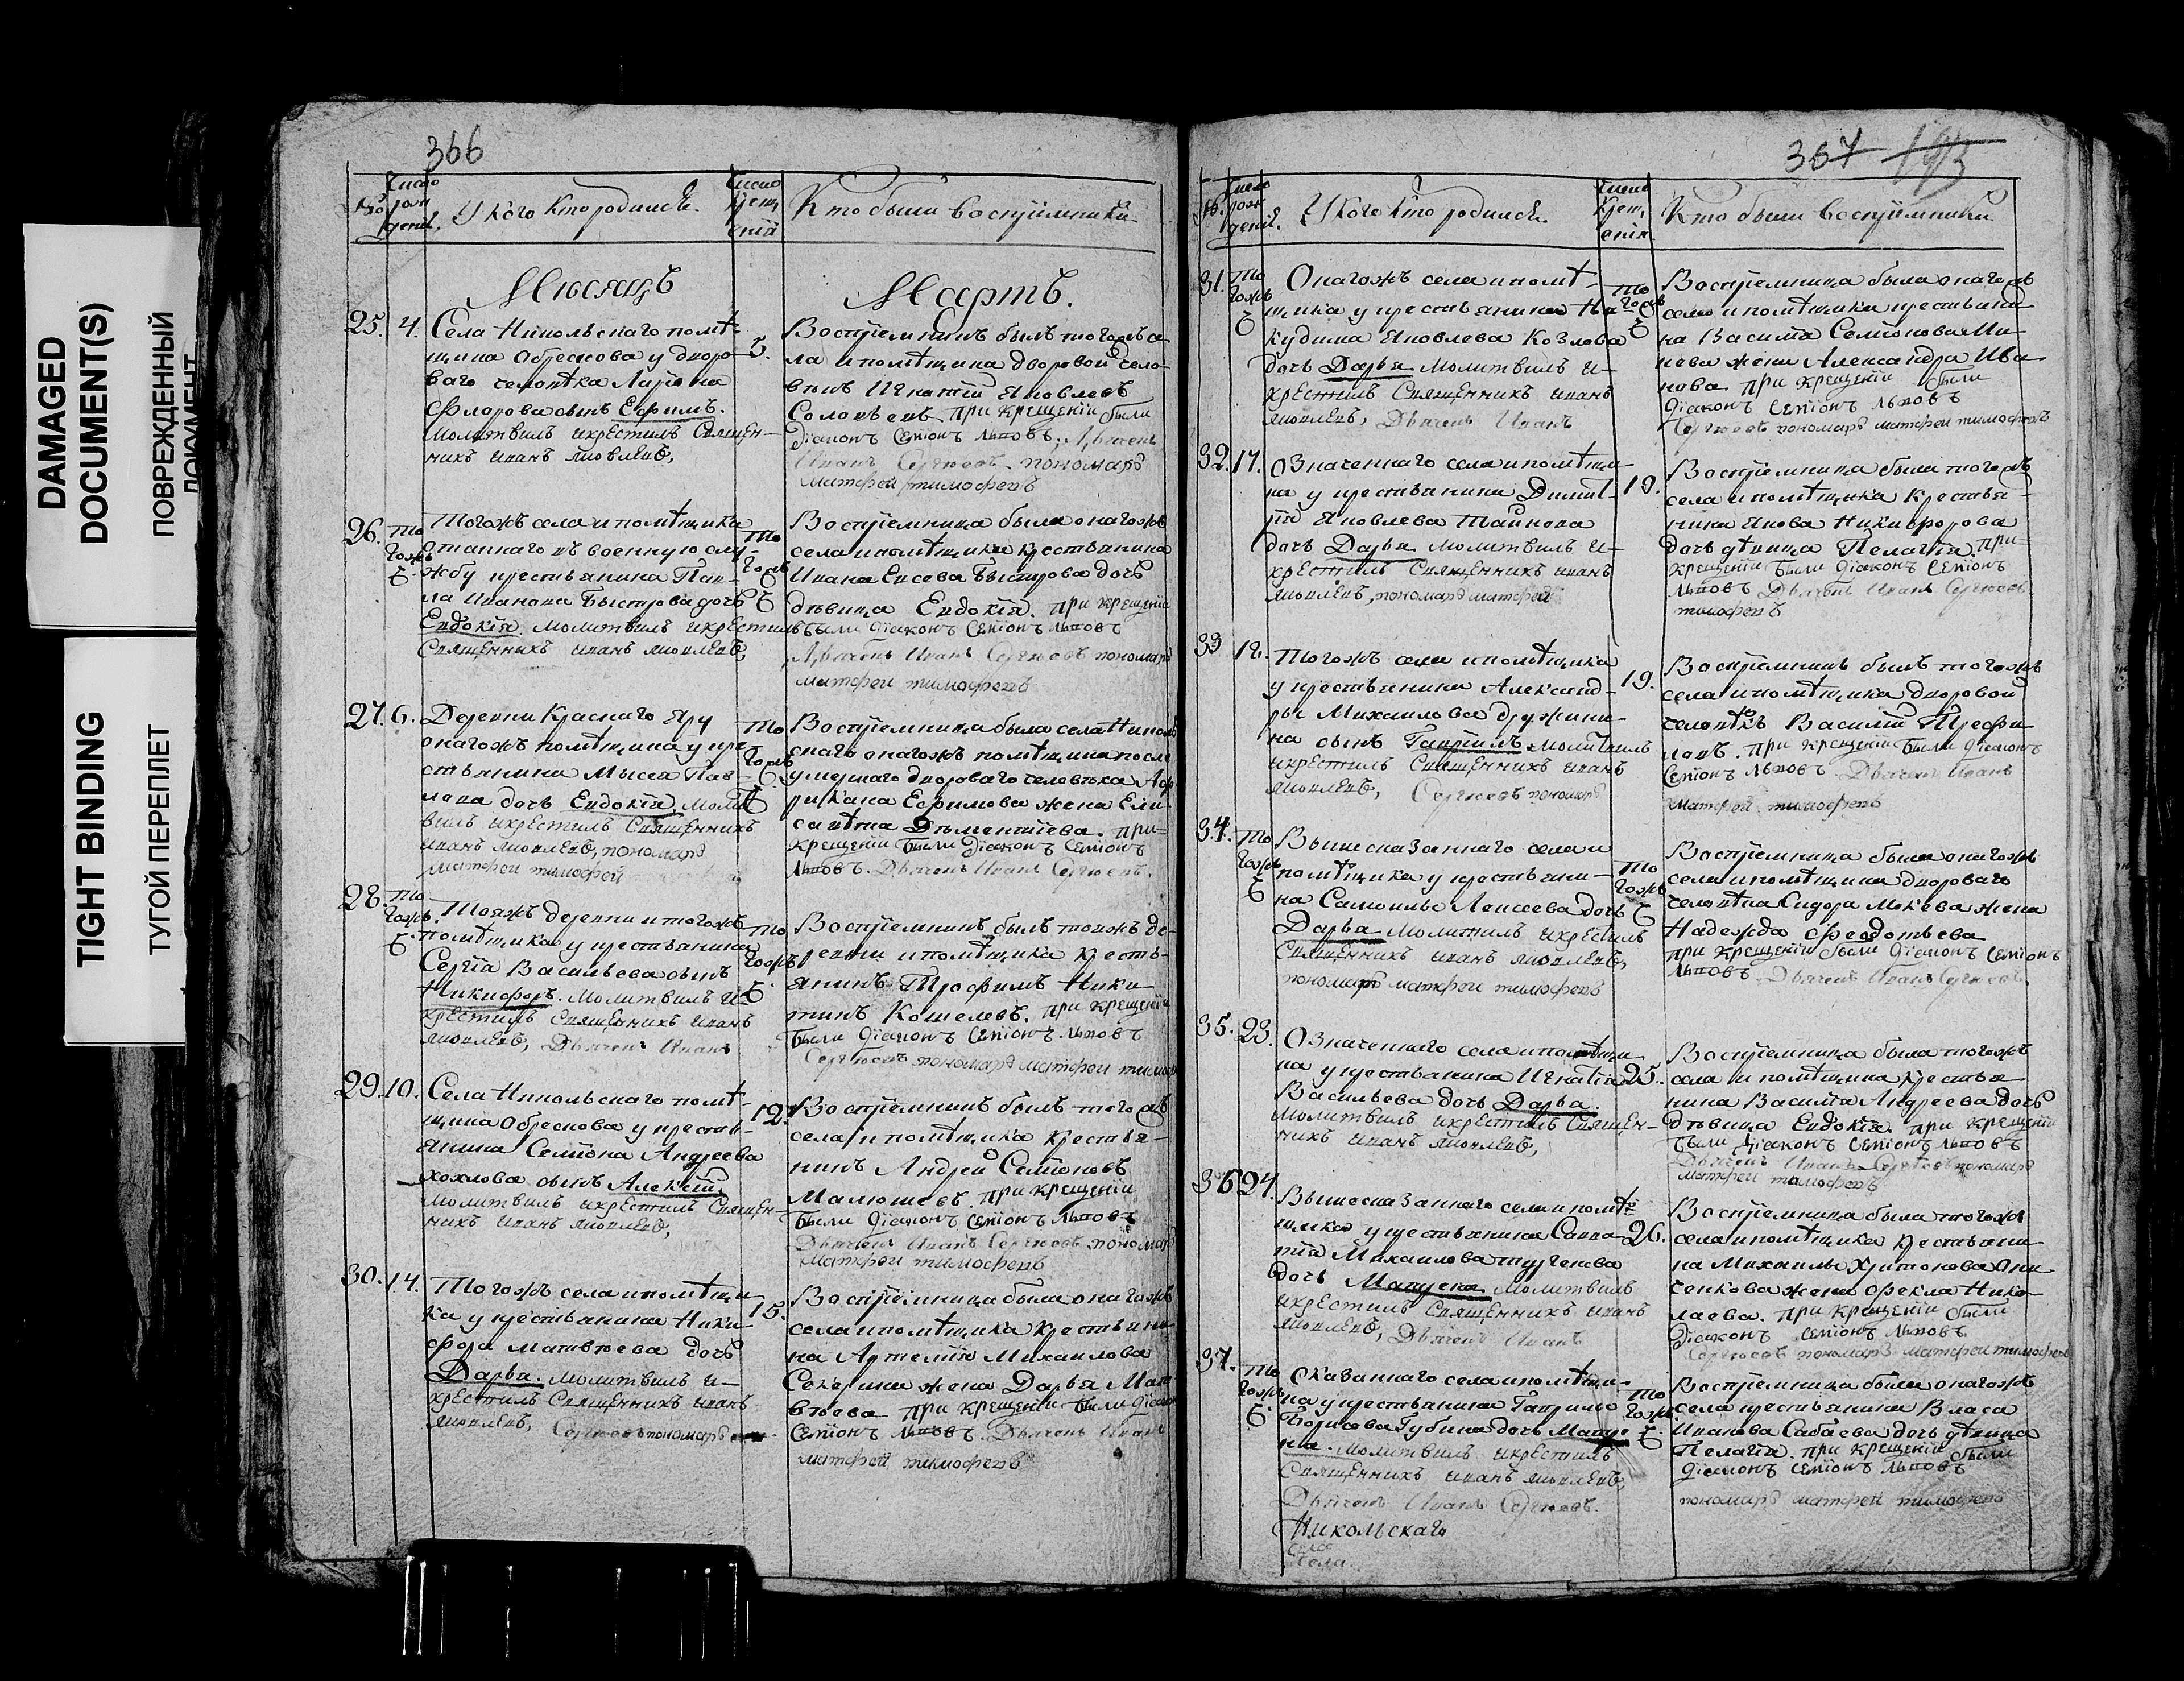 DAMAGED
DOCUMENT(S)
ПОВРЕЖДЕННЫЙ
ДОКУМЕНТ
TIGHT BINDING
ТУГОЙ ПЕРЕПЛЕТ
366
У кого кто родился.
Кто были восприемники
Мѣсяцъ
Мартъ.
25. 4. Села Никольскаго помѣ-
щика Обрескова у дворо-
ваго человѣка Лариона
Флорова сынъ Ефимъ.
молитвилъ и крестилъ Священ-
никъ иванъ яковлевъ,
5.
Восприемникъ былъ тогожъ се-
ла и помѣщика дворовой чело-
вѣкъ Игнатий Яковлевъ
при крещении были
диаконъ семионъ львовъ, Дьячекъ
Иванъ Сергѣевъ пономарь
матфей тимофеевъ
26. то
гожъ
6.
Тогожъ села и помѣщика
отданнаго въ военную слу-
жбу крестьянина Пав-
ла Иванова Быстрова дочь
Евдокия. молитвилъ и крестилъ
Священникъ иванъ яковлевъ,
то
гожъ
6
Восприемница была онагожъ
села и помѣщика крестьянина
Ивана Евсева Быстрова дочь
дѣвица Евдокия. при крещении
были диаконъ семионъ львовъ
Дьячекъ Иванъ Сергѣевъ пономарь
матфей тимофеевъ
27. 6. Деревни Краснаго Яру
онагожъ помѣщика у кре-
стьянина Мысея Пав-
лова дочь Евдокия. молит-
вилъ и крестилъ Священникъ
иванъ яковлевъ, пономарь
матфей тимофей
то
гожъ
6.
Восприемница была села Николь
скаго онагожъ помѣщика после
умершаго двороваго человѣка Аф
рикана Ефимова жена Ели-
савѣта Дементиева. при-
крещении были диаконъ семионъ
львовъ. Дьячекъ Иванъ Сергѣевъ.
28. то
гожъ.
6.
Тояжъ деревни и тогожъ
помѣщика у крестьянина
Сергия Васильева сынъ
Никифоръ. молитвилъ и
крестилъ Священникъ иванъ
яковлевъ, Дьячекъ Иванъ
то
гожъ
6
Восприемникъ былъ тояжъ де-
ревни и помѣщика кресть-
янинъ Трофимъ Ники-
тинъ Кошелевъ. при крещении
были диаконъ семионъ львовъ
Сергѣевъ пономарь матфей тимоф
29. 10. Села Никольскаго помѣ-
щика Обрескова у кресть-
янина Семиона Андреева
хохлова сынъ Алексий.
молитвилъ и крестилъ Священ-
никъ иванъ яковлевъ,
12.
Восприемникъ былъ тогожъ
села и помѣщика крестья-
нинъ Андрей Семионовъ
Малюшевъ. при крещении
были диаконъ семионъ львовъ
Дьячекъ Иванъ Сергѣевъ пономарь
матфей тимофеевъ
30. 14. Тогожъ села и помѣщи-
ка у крестьянина Ники-
фора Матвѣева дочь
Дарья. молитвилъ и-
крестилъ Священникъ иванъ
яковлевъ, Сергѣевъ пономарь
15.
Восприемница была онагожъ
села и помѣщика крестьяни-
на Артемия Михаилова
жена Дарья Мат-
вѣева при крещении были диаконъ
семионъ львовъ. Дьячекъ Иванъ
матфей тимофеевъ
367 193
У кого кто родился.
Кто были восприемники
31. то
гожъ
6
Онагожъ села и помѣ-
щика у крестьянина Ни-
кудима Яковлева Козлова
дочь Дарья молитвилъ и-
крестилъ Священникъ иванъ
яковлевъ, Дьячекъ Иванъ
то
гожъ
6
Восприемница была онагожъ
села и помѣщика крестьяни-
на Василия Семионова Ми-
нева жена Александра Ива-
нова при крещении были
диаконъ семионъ львовъ
Сергѣевъ пономарь матфей тимофеевъ
32. 17. Означеннаго села и помѣщи-
ка у крестьянина Димит-
рия Яковлева Тайнова
дочь Дарья молитвилъ и-
крестилъ Священникъ иванъ
яковлевъ, пономарь матфей
19.
Восприемница была тогожъ
села и помѣщика Крестья-
нина Якова Никифорова
дочь дѣвица Пелагия при-
крещении были диаконъ семионъ
львовъ Дьячекъ Иванъ Сергѣевъ
тимофеевъ
33 18. Тогожъ села и помѣщика
у крестьянина Александ-
ры Михаилова дружини-
на сынъ Гавриилъ молитвилъ
и крестилъ Священникъ иванъ
яковлевъ, Сергѣевъ пономарь
19.
Восприемникъ былъ тогожъ
села и помѣщика дворовой
человѣкъ Василий Трефи-
ловъ. при крещении были диаконъ
семионъ львовъ. Дьячекъ Иванъ
матфей тимофеевъ
34. то
гожъ
6
Вышесказаннаго села и
помѣщика у крестьяни-
на Самоила Алексеева дочь
Дарья молитвилъ и крестилъ
Священникъ иванъ яковлевъ,
пономарь матфей тимофеевъ
то
гожъ
6
Восприемница была онагожъ
села и помѣщика двороваго
человѣка Сидора Мокѣева жена
Надежда Феодотьева
при крещении были диаконъ семионъ
львовъ Дьячекъ Иванъ Сергѣевъ.
35. 23. Означеннаго села и помѣщи-
ка у крестьянина Игнатия
Васильева дочь Дарья.
молитвилъ и крестилъ Священ-
никъ иванъ яковлевъ,
25.
Восприемница была тогожъ
села и помѣщика крестья-
нина Василия Андреева дочь
дѣвица Евдокия. при крещении
были диаконъ семионъ львовъ
Дьячекъ Иванъ Сергѣевъ пономарь
матфей тимофеевъ
36 24. Вышесказаннаго села и помѣ-
щика у крестьянина Савва-
тия Михаилова тургенева
дочь Матрена молитвилъ
и крестилъ Священникъ иванъ
яковлевъ, Дьячекъ Иванъ
26.
Восприемница была тогожъ
села и помѣщика крестьяни-
на Михаилы Харитонова Они-
сенкова жена Фекла Нико-
лаева. при крещении были
диаконъ семионъ львовъ
Сергѣевъ пономарь матфей тимофеев
37. то
гожъ
6.
Сказаннаго села и помѣщи-
ка у крестьянина Гаврила
Борисова Губина дочь Матре-
на. молитвилъ и крестилъ
Священникъ иванъ яковлевъ,
Дьячекъ Иванъ Сергѣевъ.
Никольскаго
села
то
гожъ
6
Восприемница была онагожъ
села крестьянина Власа
Иванова Сабаева дочь дѣвица
Пелагия. при крещении были
диаконъ семионъ львовъ
пономарь матфей тимофеевъ